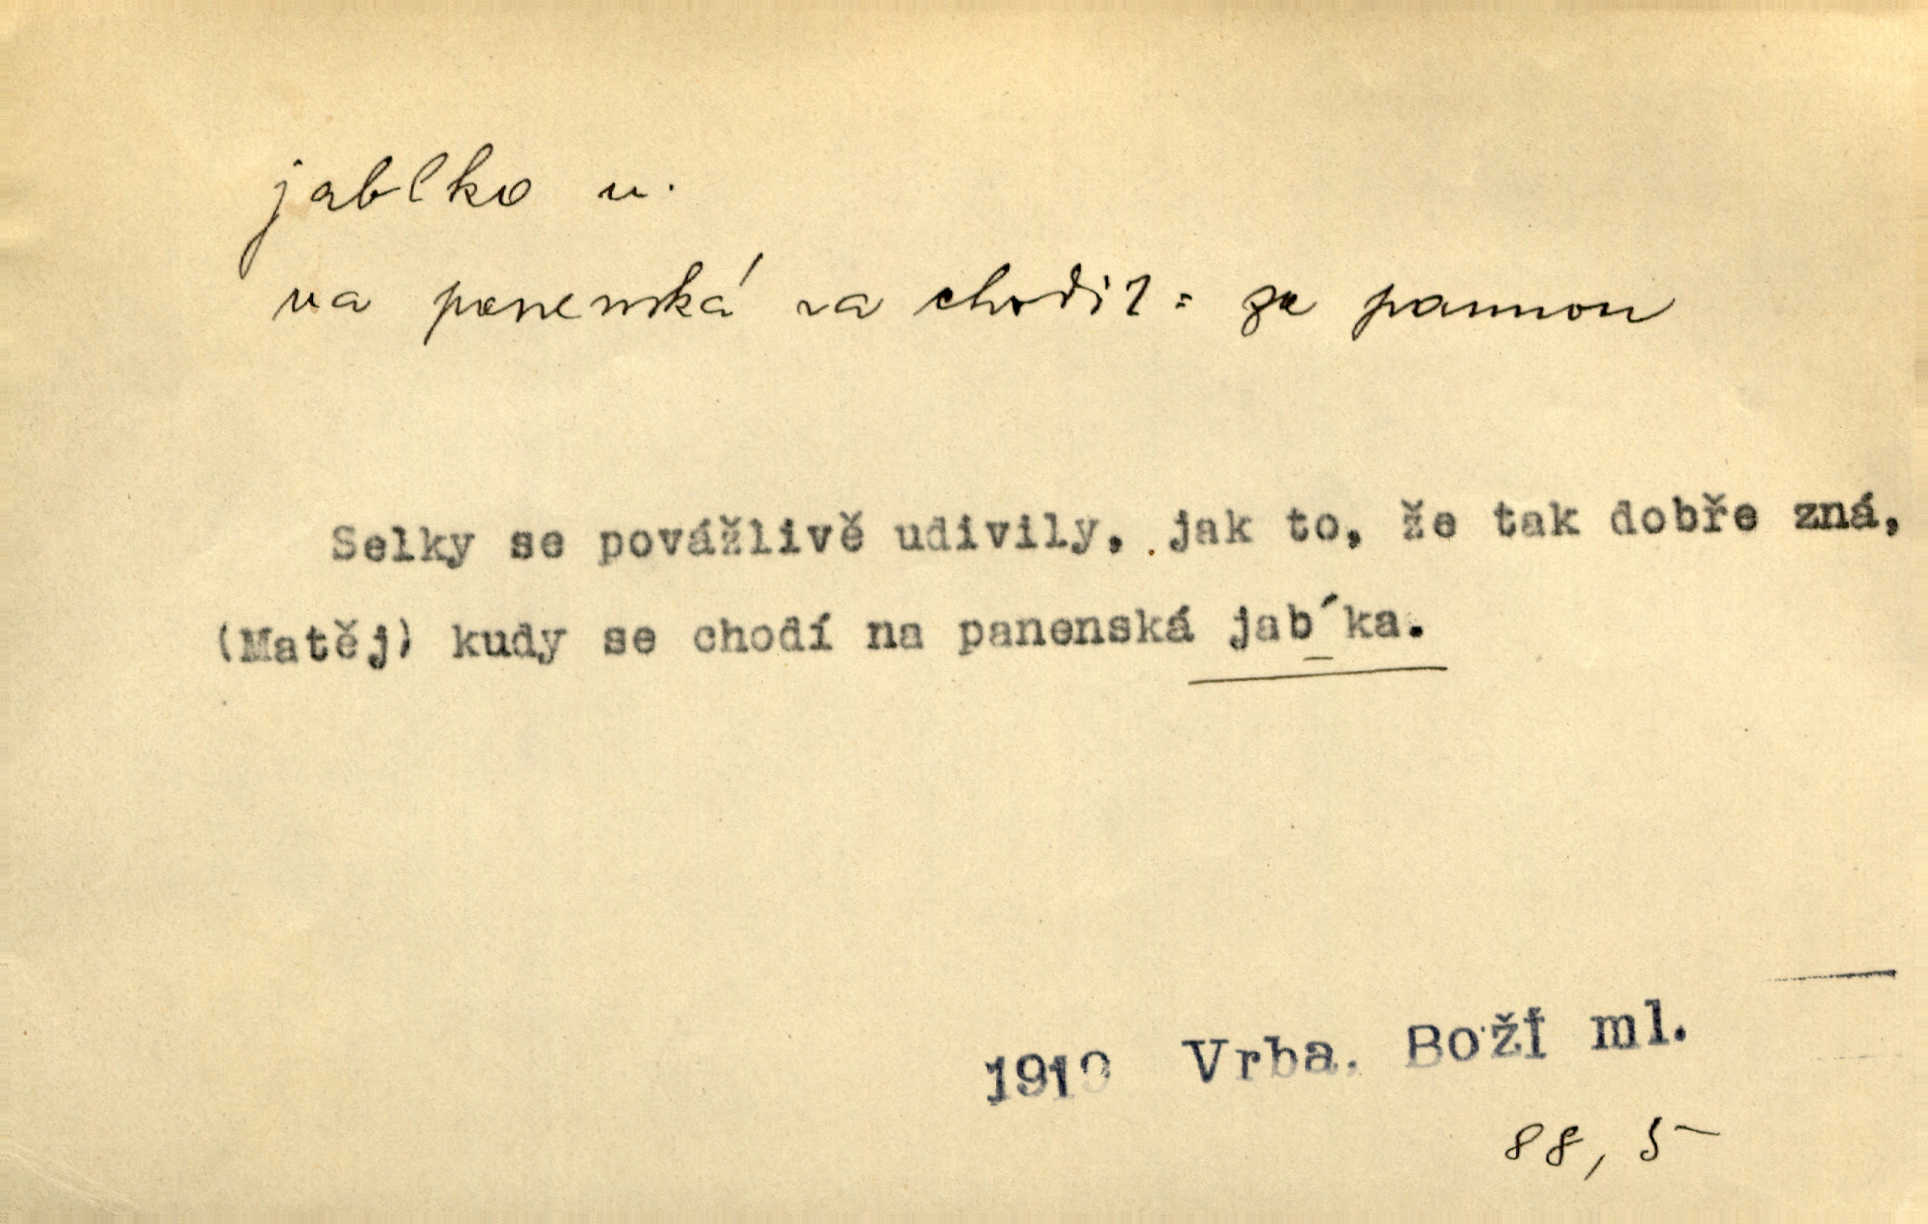 jablko n.
na panenská ~a chodit = za pannou
Selky se povážlivě udivily, jak to, že tak dobře zná,
(Matěj) kudy se chodí na panenská jab´ka.
1919 Vrba. Boží ml.
88, 5